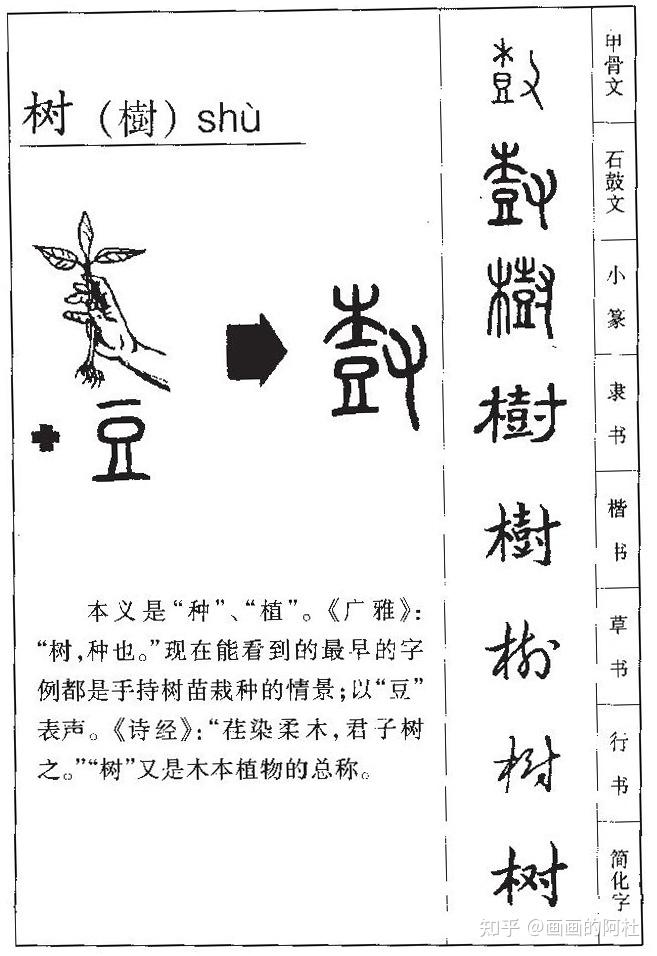 树（樹）shù
豆
本义是“种”、“植”。《广雅》：
“树，种也。”现在能看到的最早的字
例都是手持树苗栽种的情景；以“豆”
表声。《诗经》：“荏染柔木，君子树
之。”“树”又是木本植物的总称。
甲骨文
石鼓文
樹 小篆
樹 隶书
樹 楷书
树 草书
树 行书
树 简化字
知乎 @画画的阿杜